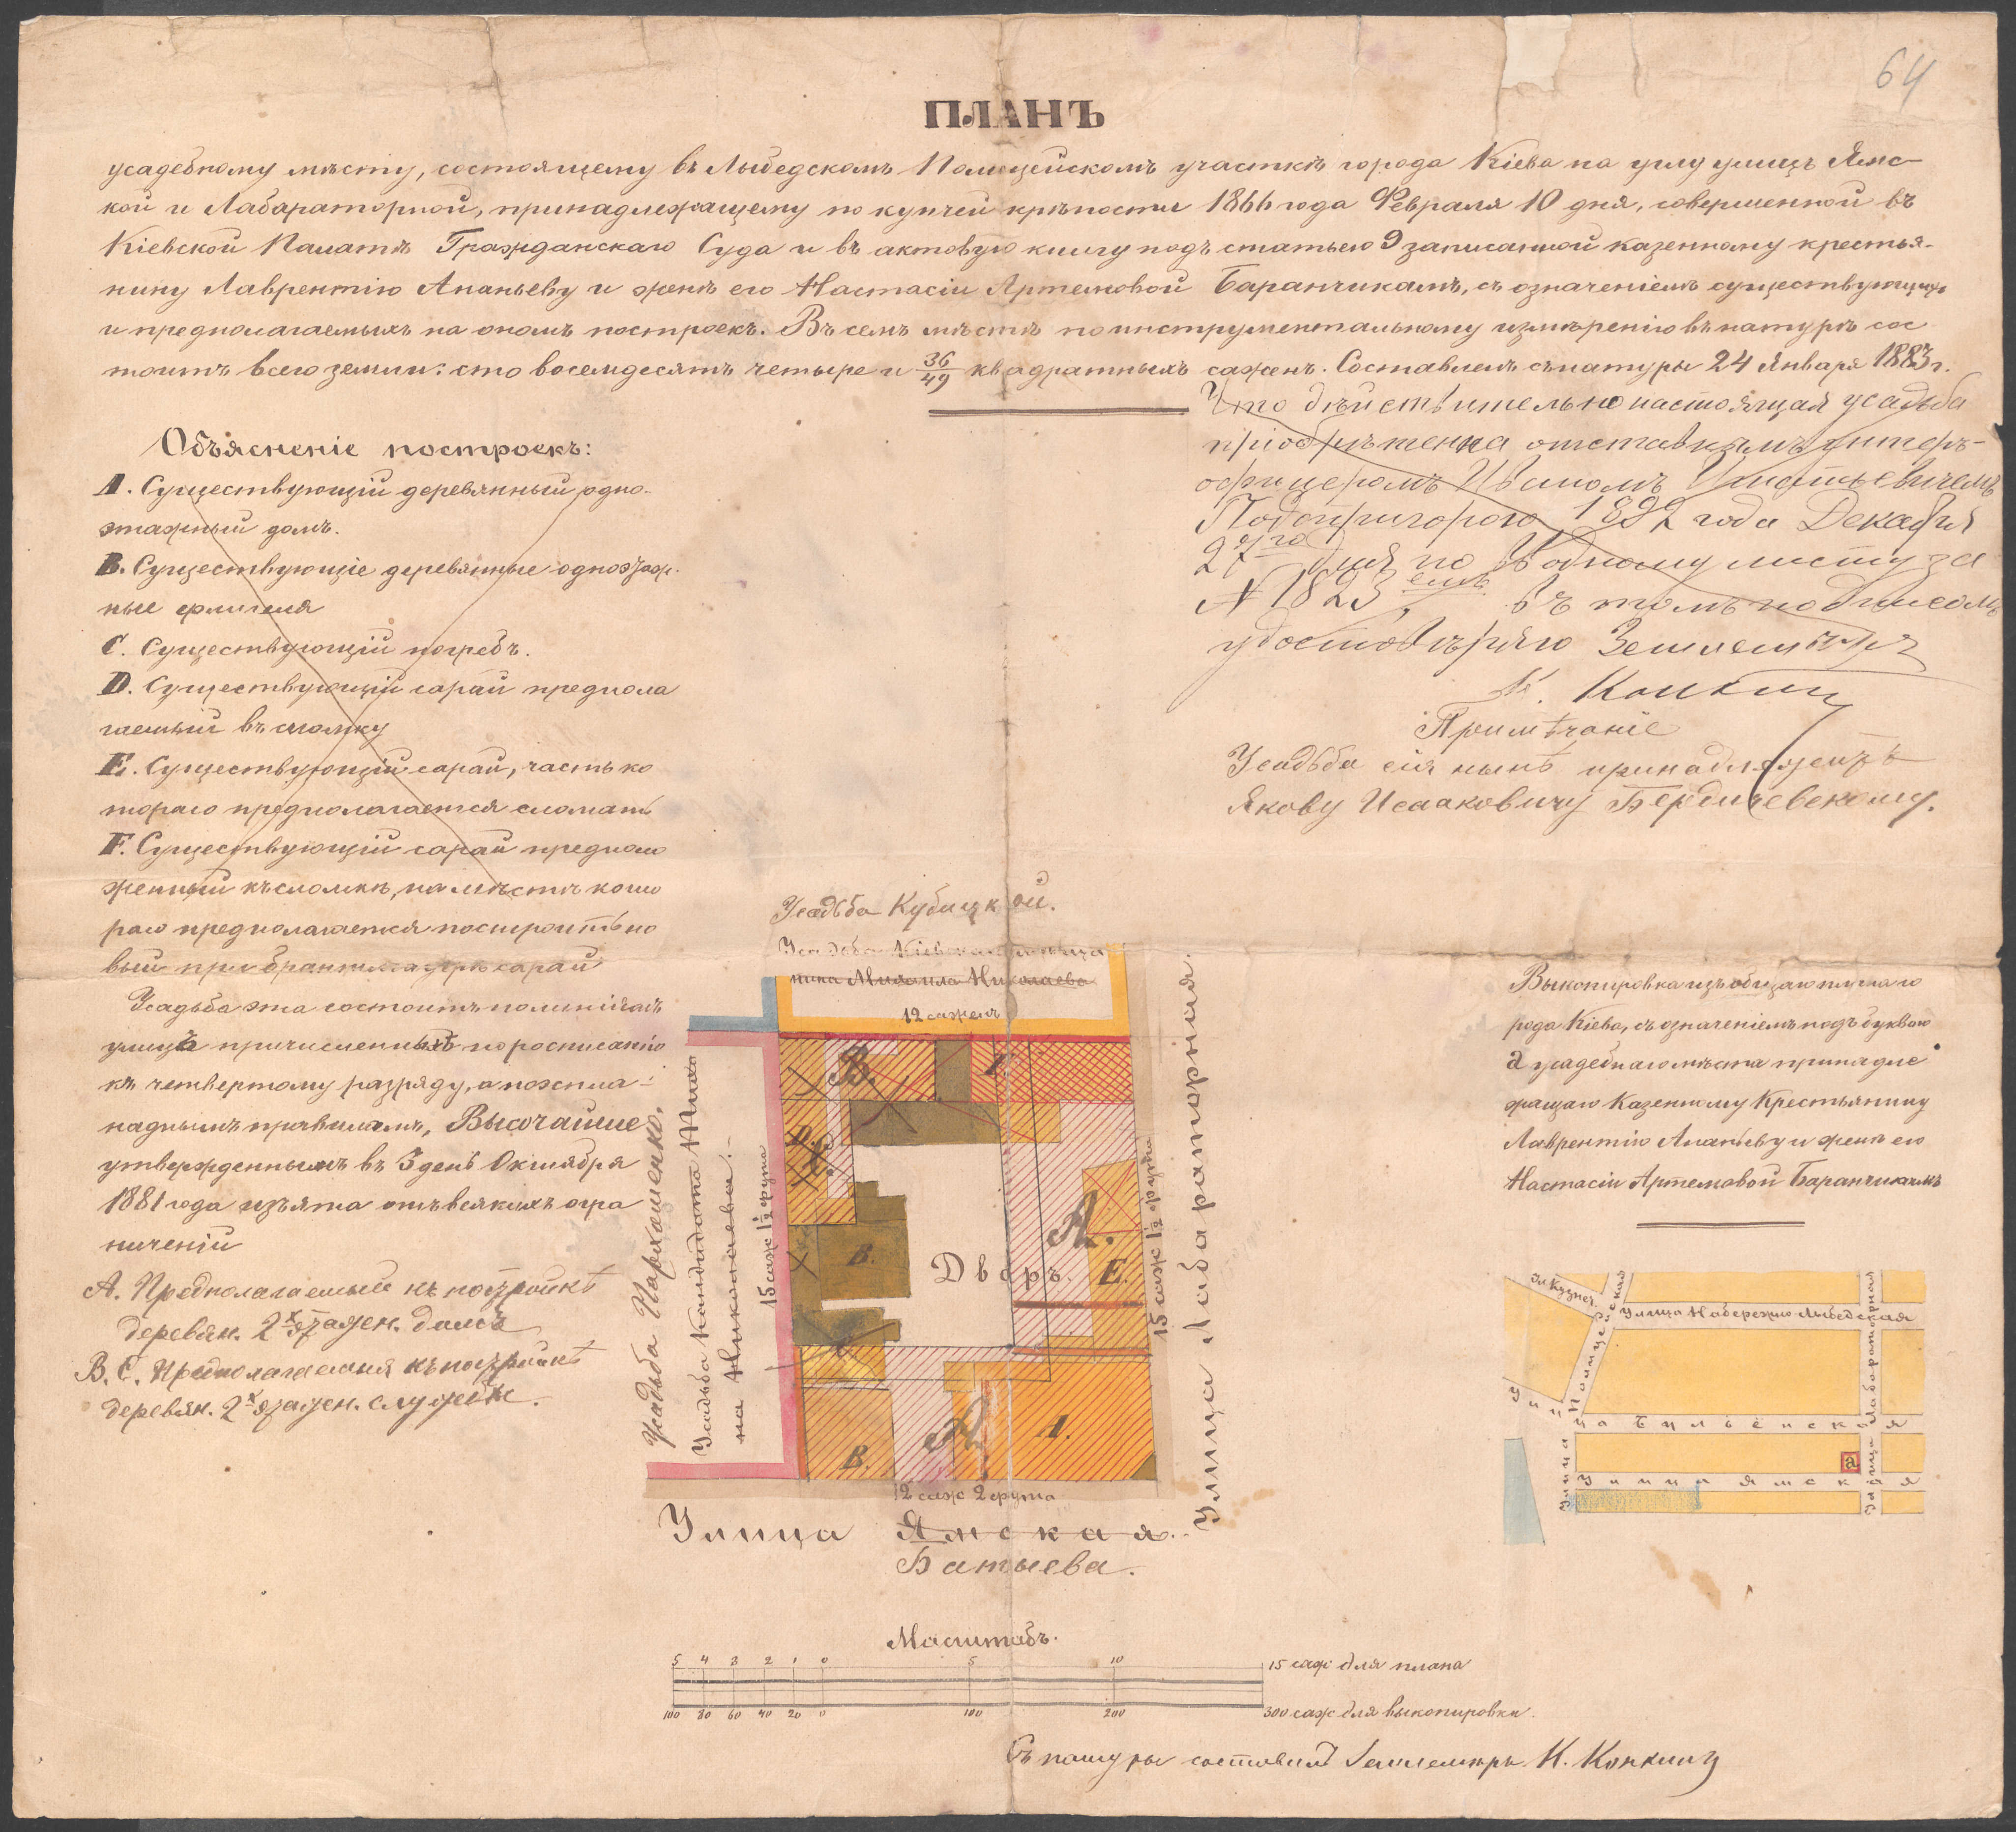 64
ПЛАНЪ
усадебному мѣсту, состоящему въ Лыбедскомъ Полицейскомъ участкѣ города Кіева на углу улицъ Ямс-
кой и Лабараторной, принадлежащему по купчей крѣпости 1866 года Февраля 10 дня, совершенной въ
Кіевской Палатѣ Гражданскаго Суда и въ актовую книгу подъ статьею 9 записанной казенному крестья-
нину Лаврентію Ананьеву и женѣ его Настасіи Артемовой Баранчикамъ, съ означеніемъ существующихъ
и предполагаемыхъ на ономъ построекъ. Въ семъ мѣстѣ по инструментальному измѣренію въ натурѣ сос
тоитъ всего земли: сто восемдесятъ четыре и 36/49 квадратныхъ сажень. Составленъ съ натуры 24 Января 1883 г.
Что дѣйствительно настоящая усадьба
пріобрѣтенна отставнымъ унтеръ-
офицеромъ Иваномъ Игнатьевичемъ
Подопригорою 1892 года Декабря
27го дня по Вводному листу за
№ 1823, въ томъ подписомъ
удостовѣряю Землемѣръ
К. Конкинъ
Примѣчаніе
Усадьба сія нынѣ принадлежитъ
Якову Исааковичу Бердичевскому.
Объясненіе построекъ:
A. Существующій деревянный одно-
этажный домъ.
B. Существующіе деревянные одноэтаж-
ные флигеля
C. Существующій погребъ.
D. Существующій сарай предпола
гаемый въ сломку
E. Существующій сарай, часть ко
тораго предполагается сломать
F. Существующій сарай предполо
женный къ сломкѣ, на мѣстѣ кото
раго предполагается построить но
вый при брантмауерѣ сарай
Усадьба эта состоитъ по линіямъ
улицъ причисленныхъ по росписанію
къ четвертому разряду, а по эспла-
наднымъ правиламъ, Высочайше
утвержденнымъ въ 3 день Октября
1881 года изъята отъ всякихъ огра
ниченій
А. Предполагаемый къ постройкѣ
деревян. 2х этажн. домъ
В. С. Предполагаемыя къ постройкѣ
деревян. 2х этажн. службы.
Усадьба Кубицкой.
Усадьба Кіевскаго мѣща
нина Михаила Николаева
12 сажень
Усадьба Пархоменко.
Усадьба Кандидата Миха
на Николаева.
15 саж 1½ фута
B.
F.
D.
C.
B.
Дворъ.
A.
E.
A
B.
A.
15 саж 1½ фута
Улица Лабораторная.
12 саж 2 фута
Улица Ямская.
Батыева.
Выкопировка изъ общаго плана го
рода Кіева, съ означеніемъ подъ буквою
а усадебнаго мѣста принадле
жащаго Казенному Крестьянину
Лаврентію Ананьеву и женѣ его
Настасіи Артемовой Баранчикамъ
Ул Кузнеч.
Полицейская
Улица Набережно-Лыбедская
Улица Лабораторная
Улица
Улица Ямская
Улица
а
Масштабъ.
5 4 3 2 1 0 5 10 15 саж для плана
100 80 60 40 20 0 100 200 300 саж для выкопировки.
Съ натуры составилъ Землемѣръ К. Конкинъ